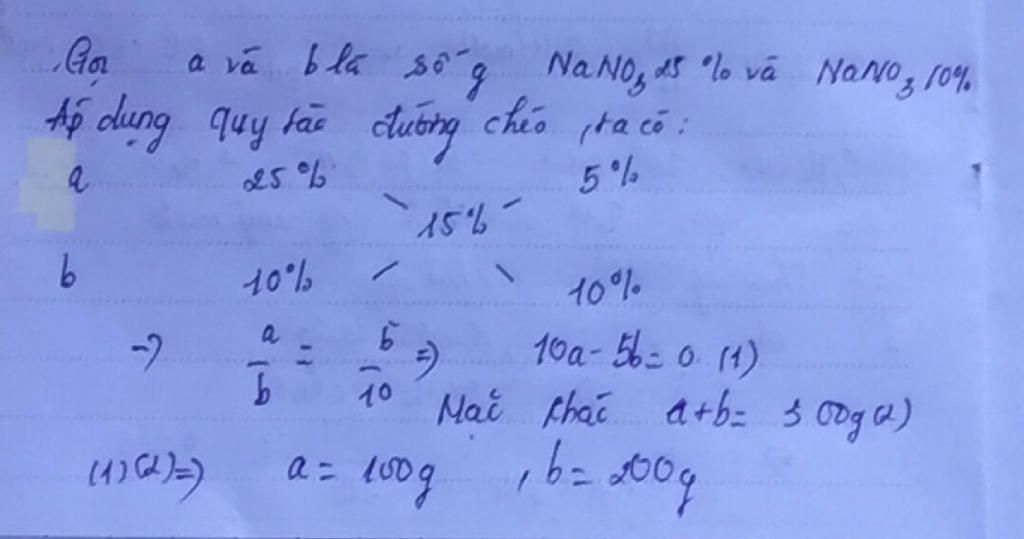 Gọi a và b là số g NaNO3 25 % và NaNO3 10%
Áp dụng quy tắc đường chéo, ta có:
a 25% 5%
15%
b 10% 10%
→ a/b = 5/10 => 10a - 5b = 0 (1)
Mặc khác a+b= 300g (2)
(1) (2) => a = 100g , b = 200g